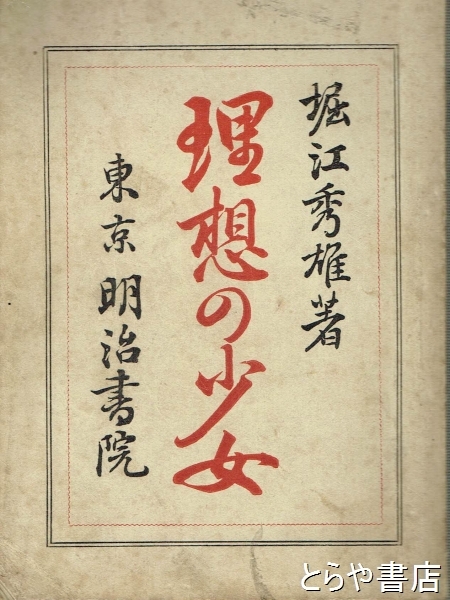 堀江秀雄著
理想の少女
東京 明治書院
とらや書店